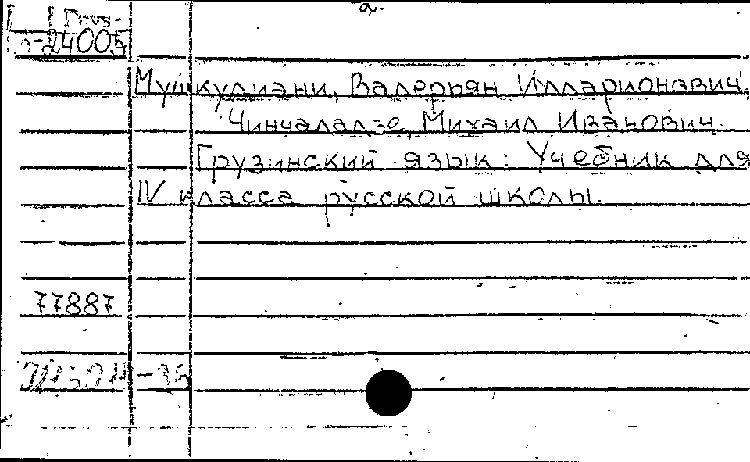 24005
Мушкудиани, Валерьян Илларионович,
Чинчаладзе, Михаил Иванович.
Грузинский язык: Учебник для
IV класса русской школы.
77887